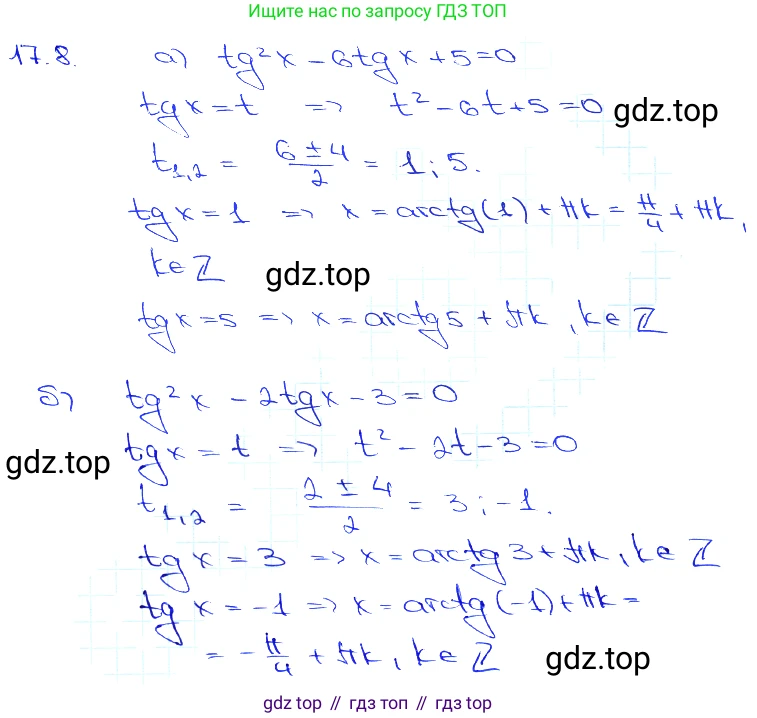 Ищите нас по запросу ГДЗ ТОП
17.8. а) tg²x - 6tgx + 5 = 0
tgx = t => t² - 6t + 5 = 0
gdz.top
t₁,₂ = (6 ± 4)/2 = 1; 5.
tgx = 1 => x = arctg(1) + πk = π/4 + πk,
k ∈ ℤ
gdz.top
tgx = 5 => x = arctg5 + πk, k ∈ ℤ
б) tg²x - 2tgx - 3 = 0
tgx = t => t² - 2t - 3 = 0
gdz.top
t₁,₂ = (2 ± 4)/2 = 3; -1.
tgx = 3 => x = arctg3 + πk, k ∈ ℤ
tgx = -1 => x = arctg(-1) + πk =
= -π/4 + πk, k ∈ ℤ
gdz.top
gdz top // гдз топ // gdz top